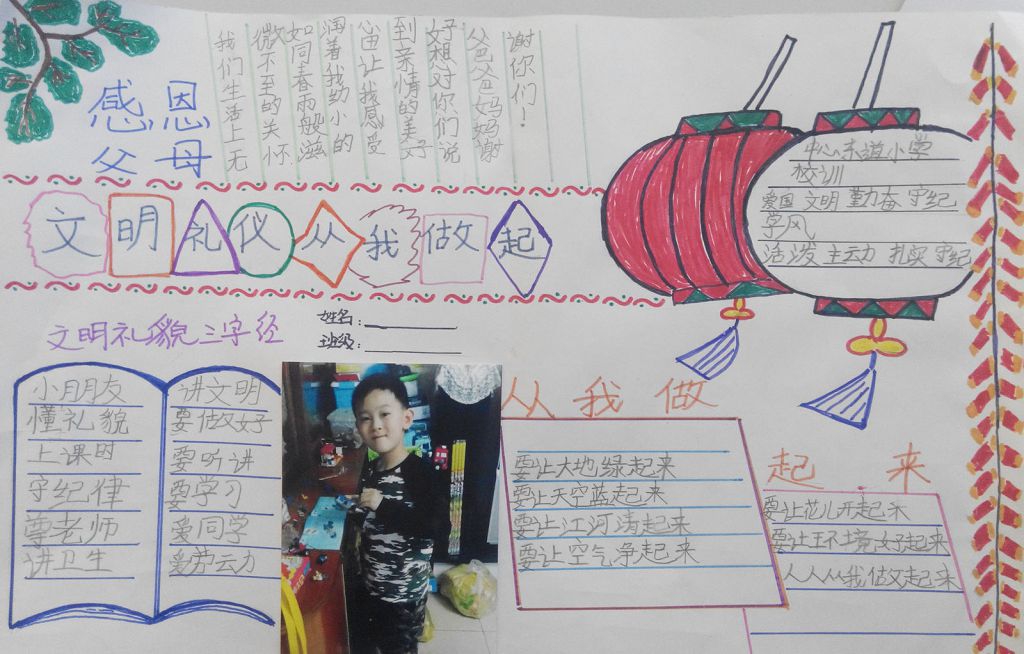 感恩
父母
我们生活上无
微不至的关怀
如同春雨般滋
润着我幼小的
心田让我感受
到亲情的美好
好想对你们说
爸爸妈妈谢
谢你们！
中心东道小学
校训
爱国 文明 勤奋 守纪
学风
活泼 主动 扎实 守纪
文明礼仪从我做起
文明礼貌三字经
姓名：
班级：
小朋友 讲文明
懂礼貌 要做好
上课时 要听讲
守纪律 要学习
尊老师 爱同学
讲卫生 爱劳动
从我做
起来
要让大地绿起来
要让天空蓝起来
要让江河清起来
要让空气净起来
要让花儿开起来
要让环境好起来
人人从我做起来